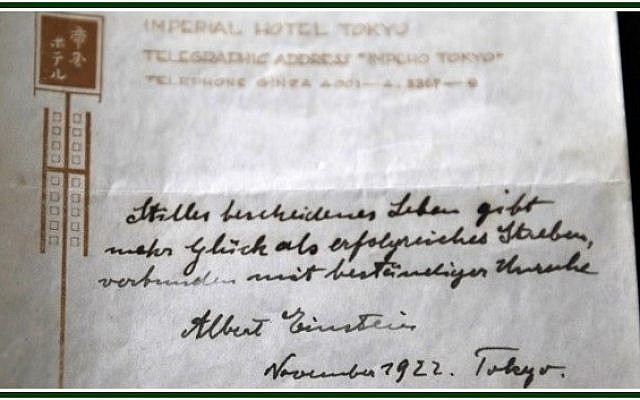 帝
ホテル
IMPERIAL HOTEL TOKYO
TELEGRAPHIC ADDRESS "IMPEHO TOKYO"
TELEPHONE GINZA 4001—4,
Stilles bescheidenes Leben gibt
mehr Glück als erfolgreiches Streben,
verbunden mit beständiger Unruhe
Albert Einstein
November 1922. Tokyo.